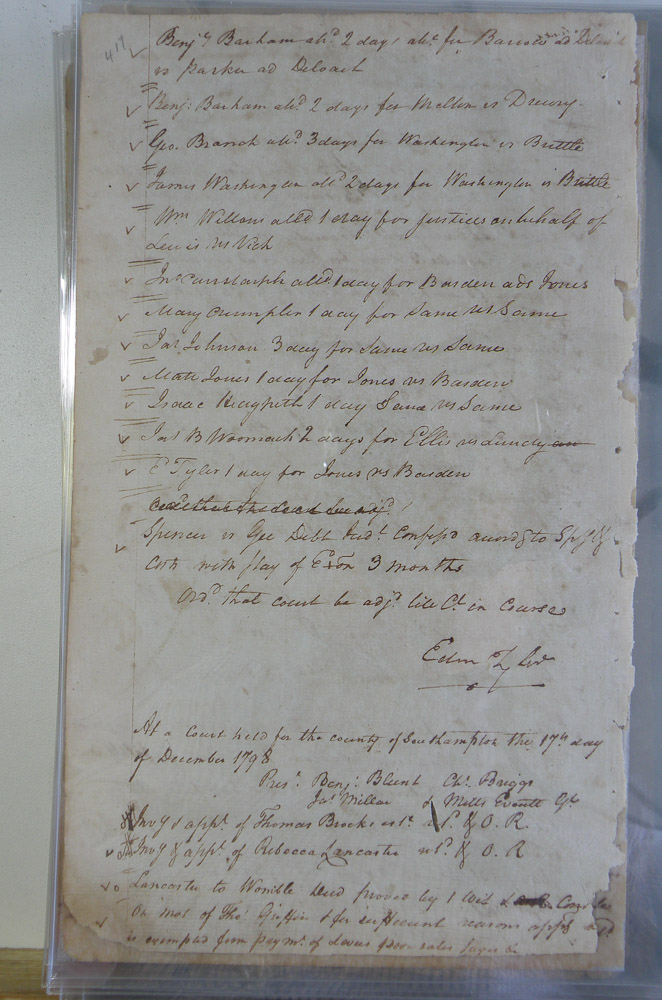 417
Benj: Barham atd 2 days ats for Barrow ad
vs Parker ad Deloach
Benj: Barham atd 2 days for Mellon vs Drewry
Geo. Branch atd 3 days for Washington vs Brittle
James Washington atd 2 days for Washington vs Brittle
Wm Wellons attd 1 day for justices on behalf of
Lewis vs Vick
attd 1 day for Barden ads Jones
Mary Crumpler 1 day for Same vs Same
Jas Johnson 3 day for Same vs Same
Matt Jones 1 day for Jones vs Barden
Isaac Hedgpeth 1 day Same vs Same
Jas B Woomack 2 days for Ellis vs Lundy
E Tyler 1 day for Jones vs Barden
Spencer vs Gee Debt Judt. Confess'd accordg to Spy &
Costs with stay of Exon 3 months
Ord. that court be adjd. till Ct. in Course
Edm Tyler
At a Court held for the county of Southampton the 17th day
of December 1798
Prest. Benj: Blunt Chs. Briggs
Jas. Millar & Mills Everitt Gts
Invy & appt. of Thomas Brocks est. & O. R.
Invy & appt. of Rebecca Lancaster retd. & O. R
Lancaster to Womble Deed proved by 1 wit &
On mot of Thos. Griffin & for sufficient reasons appg
is exempted from paymt. of Levies poor rates